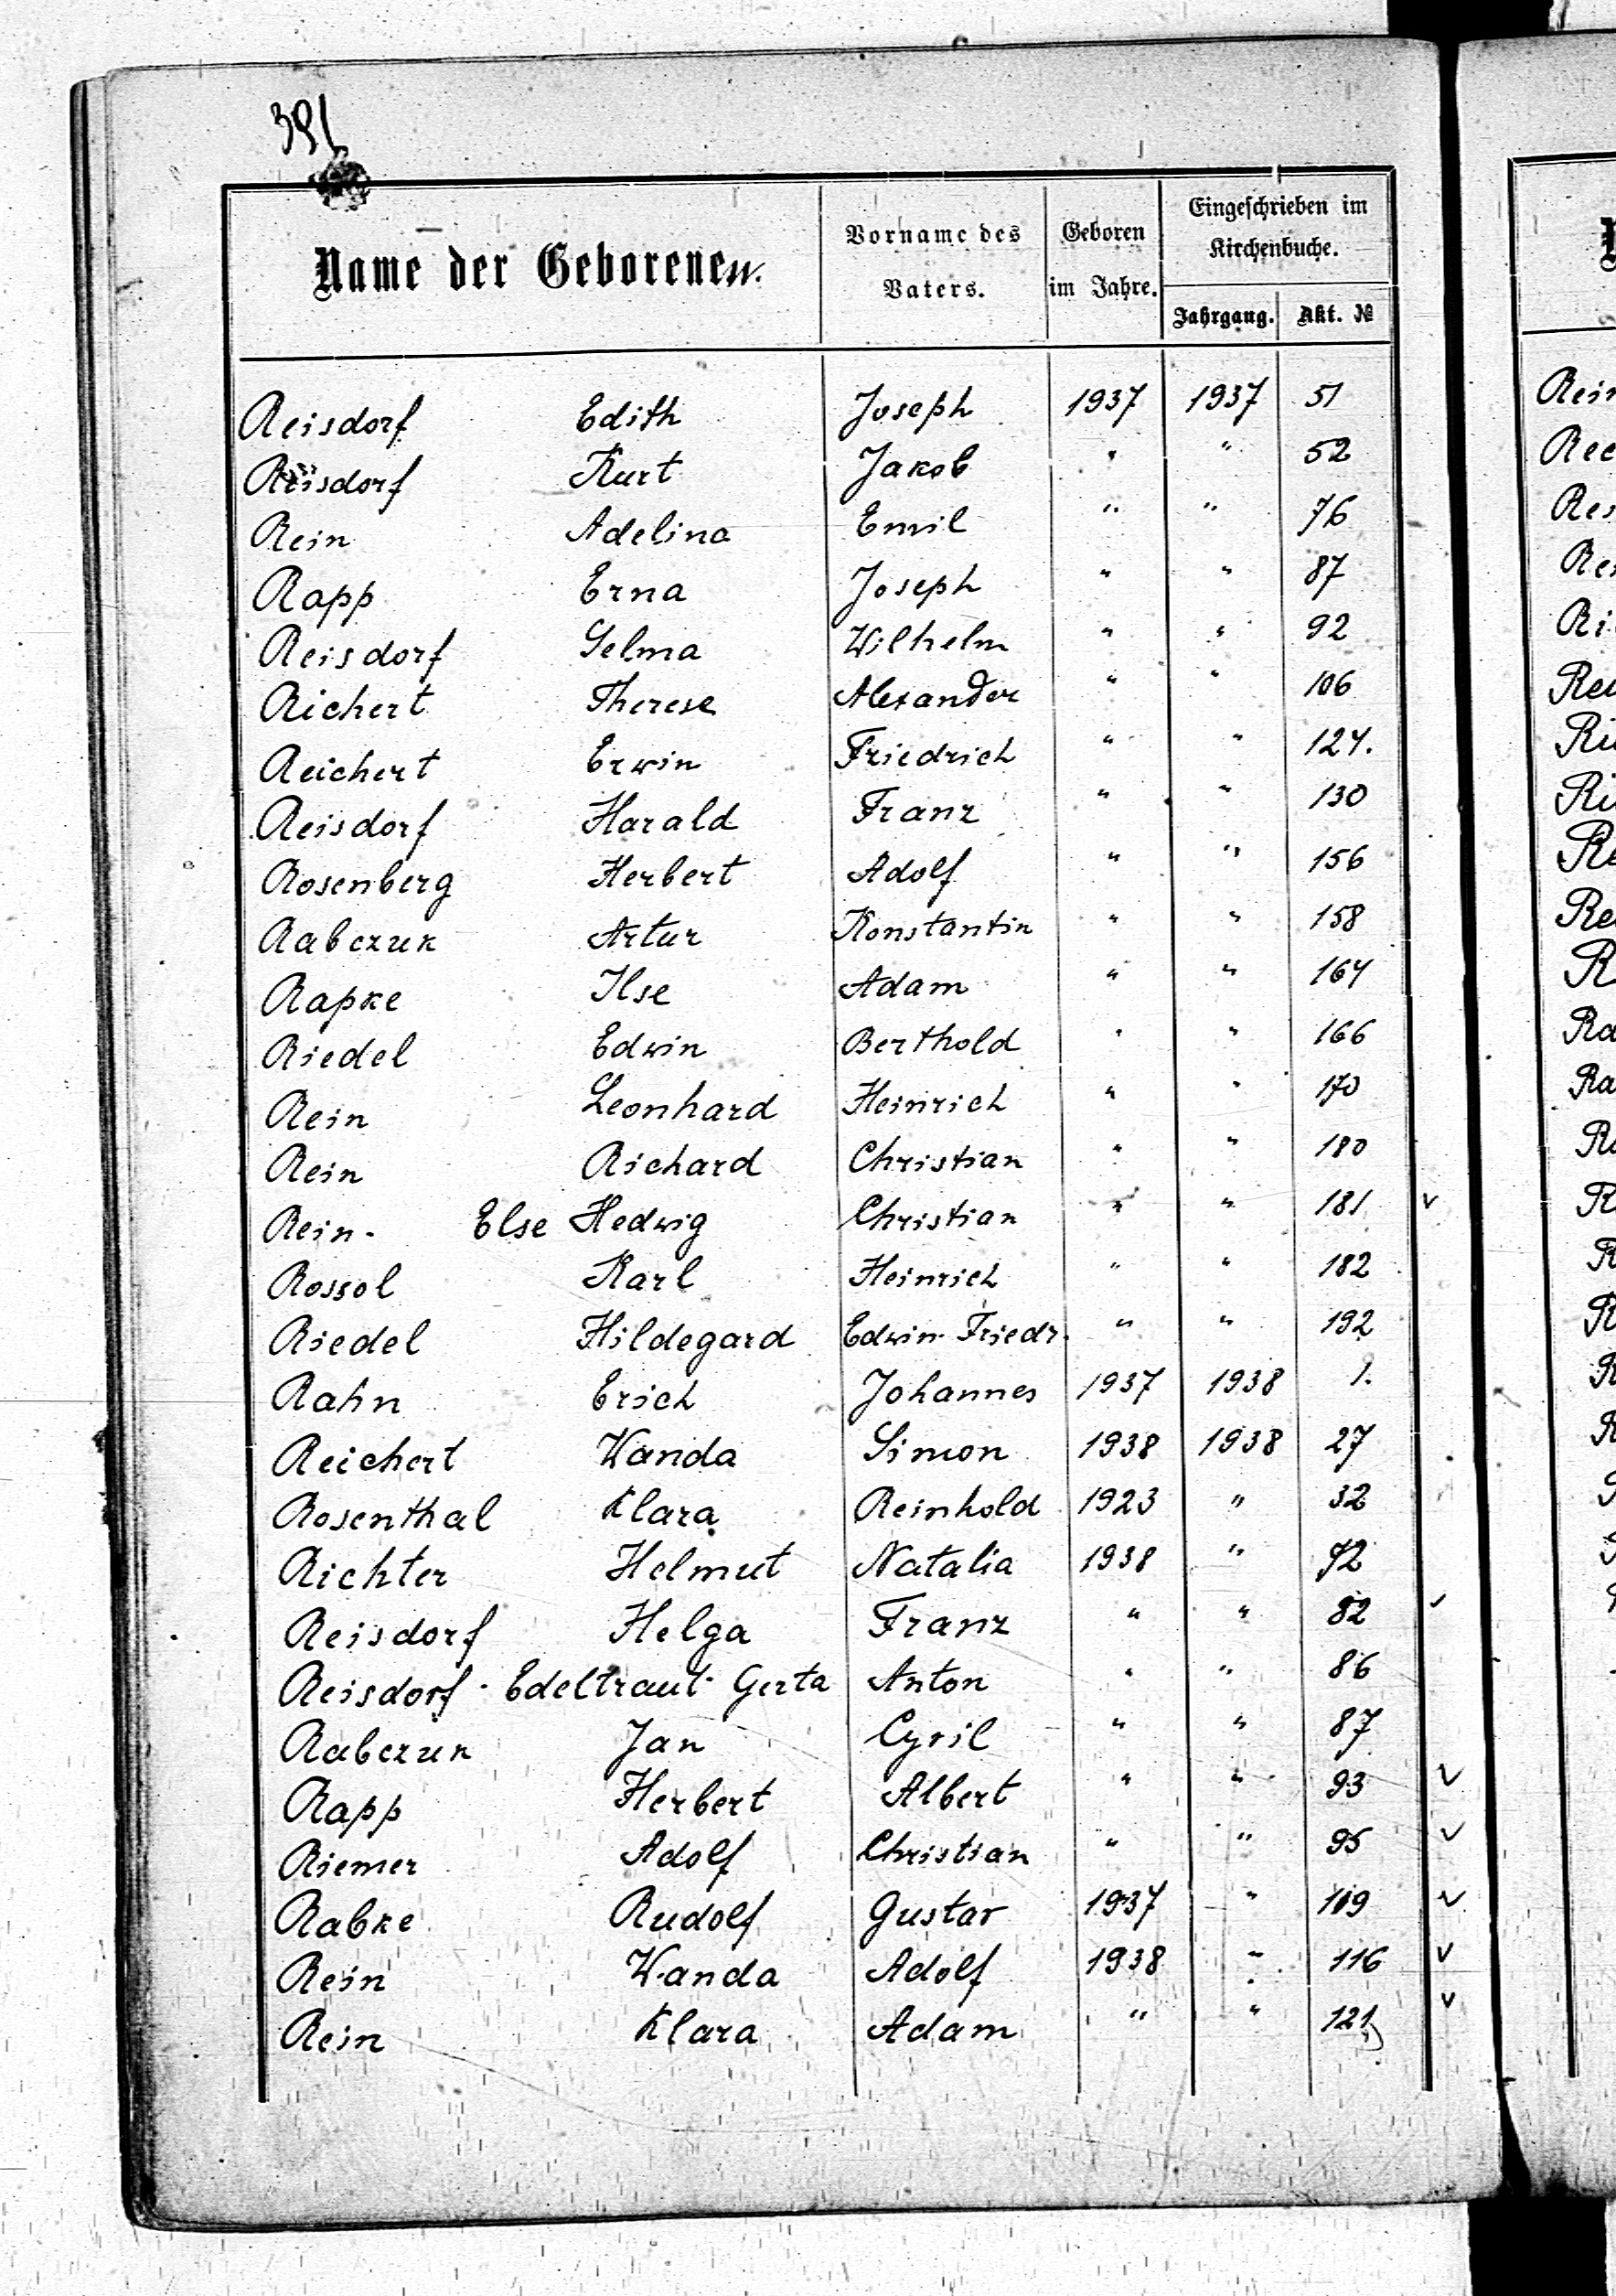 391
Name der Geborenen.
Vorname des Vaters.
Geboren im Jahre.
Eingeschrieben im Kirchenbuche.
Jahrgang. Akt. №
Reisdorf Edith Joseph 1937 1937 51
Reisdorf Kurt Jakob " " 52
Rein Adelina Emil " " 76
Rapp Erna Joseph " " 87
Reisdorf Selma Wilhelm " " 92
Richert Therese Alexander " " 106
Reichert Erwin Friedrich " " 124.
Reisdorf Harald Franz " " 130
Rosenberg Herbert Adolf " " 156
Rabczuk Artur Konstantin " " 158
Rapke Ilse Adam " " 164
Riedel Edwin Berthold " " 166
Rein Leonhard Heinrich " " 170
Rein Richard Christian " " 180
Rein. Else Hedwig Christian " " 181 v
Rossol Karl Heinrich " " 182
Riedel Hildegard Edwin Friedr. " " 192
Rahn Erich Johannes 1937 1938 1.
Reichert Wanda Simon 1938 1938 27
Rosenthal Klara Reinhold 1923 " 32
Richter Helmut Natalia 1938 " 72
Reisdorf Helga Franz " " 82 ✓
Reisdorf Edeltraut Gerta Anton " " 86
Rabczuk Jan Cyril " " 87
Rapp Herbert Albert " " 93 v
Riemer Adolf Christian " " 95 v
Rabke Rudolf Gustav 1937 " 109 v
Rein Wanda Adolf 1938 " 116 v
Rein Klara Adam " " 121 v